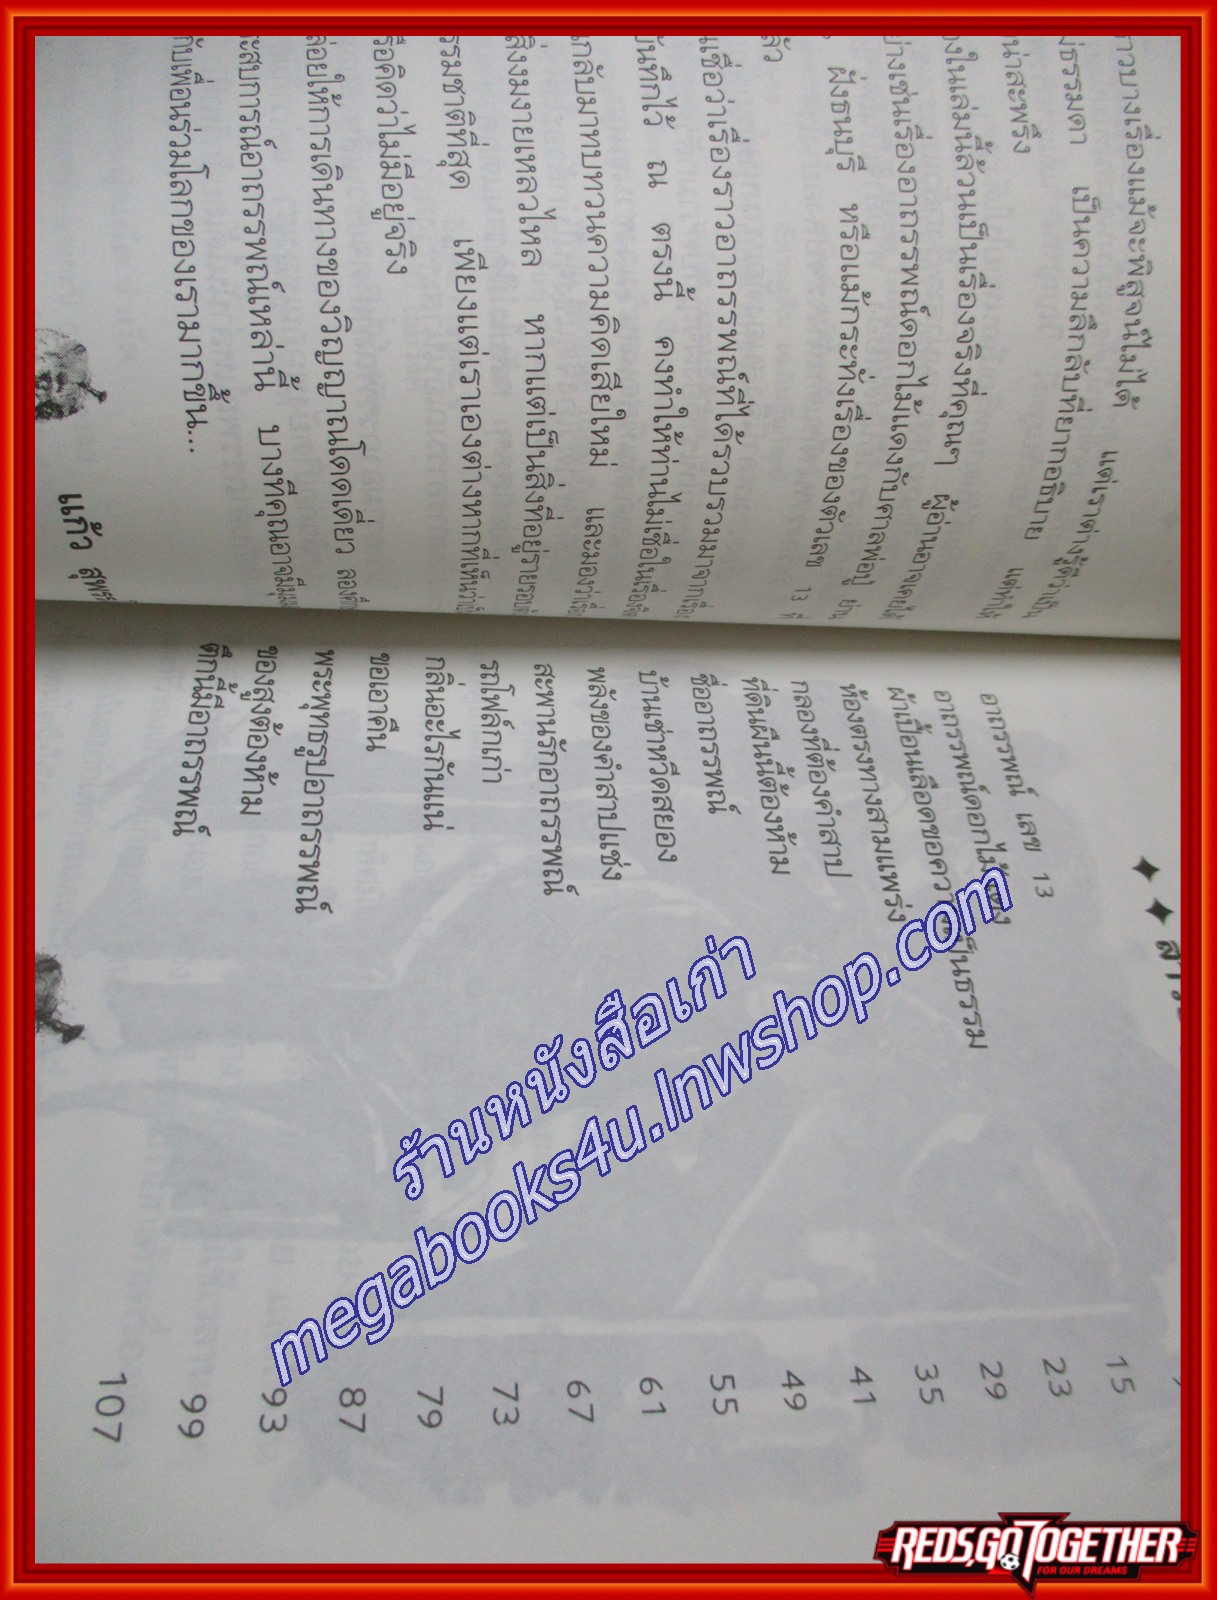 าวบางเรื่องแม้จะพิสูจน์ไม่ได้ แต่เราต่างรู้ดีว่าเป็น
ม่ธรรมดา เป็นความลึกลับที่ยากอธิบาย แต่ทำให้
น่าสะพรึง
งในเล่มนี้ล้วนเป็นเรื่องจริงที่คุณๆ ผู้อ่านอาจเคยได้
ย่างเช่นเรื่องอาถรรพณ์ดอกไม้แดงกับศาลพ่อปู่ ย่าน
ฝั่งธนบุรี หรือแม้กระทั่งเรื่องของตัวเลข 13 ที่
ล้ว
มเชื่อว่าเรื่องราวอาถรรพณ์ที่ได้รวบรวมมาจากเรื่อง
ันทึกไว้ ณ ตรงนี้ คงทำให้ท่านไม่เชื่อในเรื่อง
กลับมาทบทวนความคิดเสียใหม่ และมองว่าเรื่อง
สิ่งงมงายเหลวไหล หากแต่เป็นสิ่งที่อยู่รายรอบ
รรมชาติที่สุด เพียงแต่เราเองต่างหากที่เห็นว่า
รือคิดว่าไม่มีอยู่จริง
ล่อยให้การเดินทางของวิญญาณโดดเดี่ยว ลอง
ะสบการณ์อาถรรพณ์เหล่านี้ บางทีคุณอาจมีมุม
กับเพื่อนร่วมโลกของเรามากขึ้น...
แก้ว
✦ ✦ สา
อาถรรพณ์ เลข 13
อาถรรพณ์ดอกไม้แดง 15
ผ้าเปื้อนเลือดขอความเป็นธรรม 23
ห้องตรงทางสามแพร่ง 29
กลองที่ต้องคำสาป 35
ที่ดินผืนนี้ต้องห้าม 41
ชื่ออาถรรพณ์ 49
บ้านเช่าหวีดสยอง 55
พลังของคำสาปแช่ง 61
สะพานรักอาถรรพณ์ 67
รถโฟล์กเก่า 73
กลิ่นอะไรกันแน่ 79
ขอเอาคืน 87
พระพุทธรูปอาถรรพณ์ 93
ของสูงต้องห้าม 99
ตึกนี้มีอาถรรพณ์ 107
ร้านหนังสือเก่า
megabooks4u.lnwshop.com
REDS,GO TOGETHER
FOR OUR DREAMS